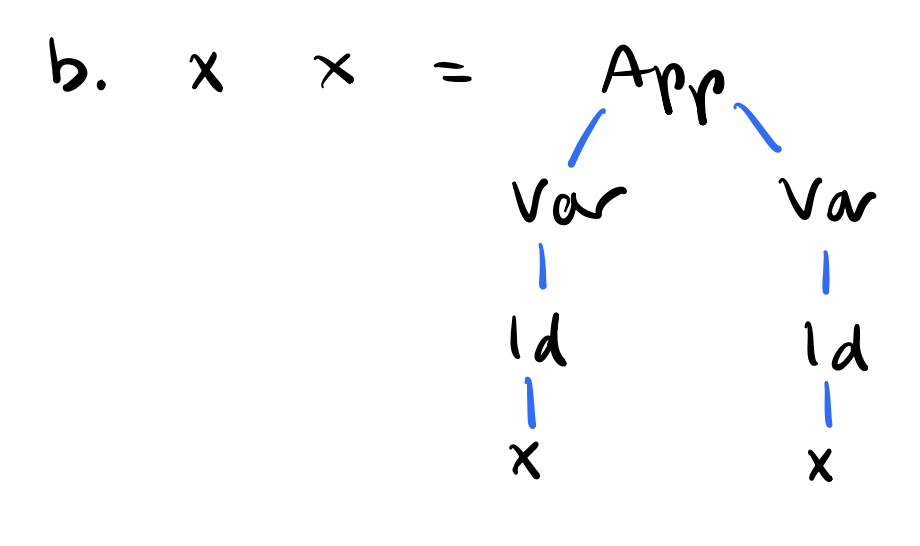 b. x x = App
Var Var
Id Id
x x